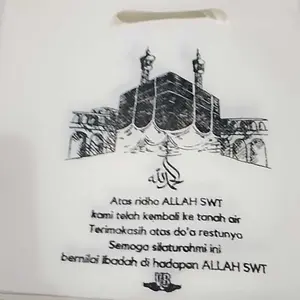 الحمد لله
Atas ridho ALLAH SWT
kami telah kembali ke tanah air
Terimakasih atas do'a restunya
Semoga silaturohmi ini
bernilai ibadah di hadapan ALLAH SWT